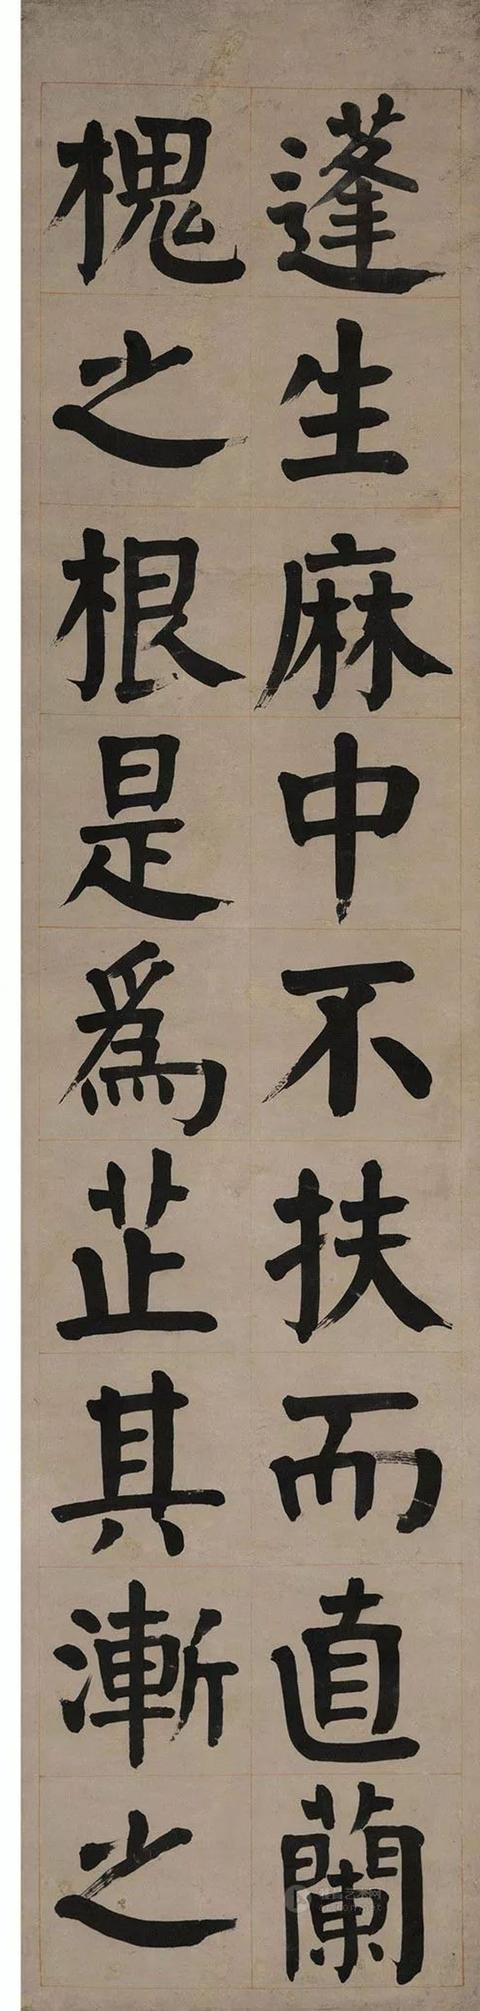 蓬生麻中不扶而直蘭
槐之根是爲芷其漸之